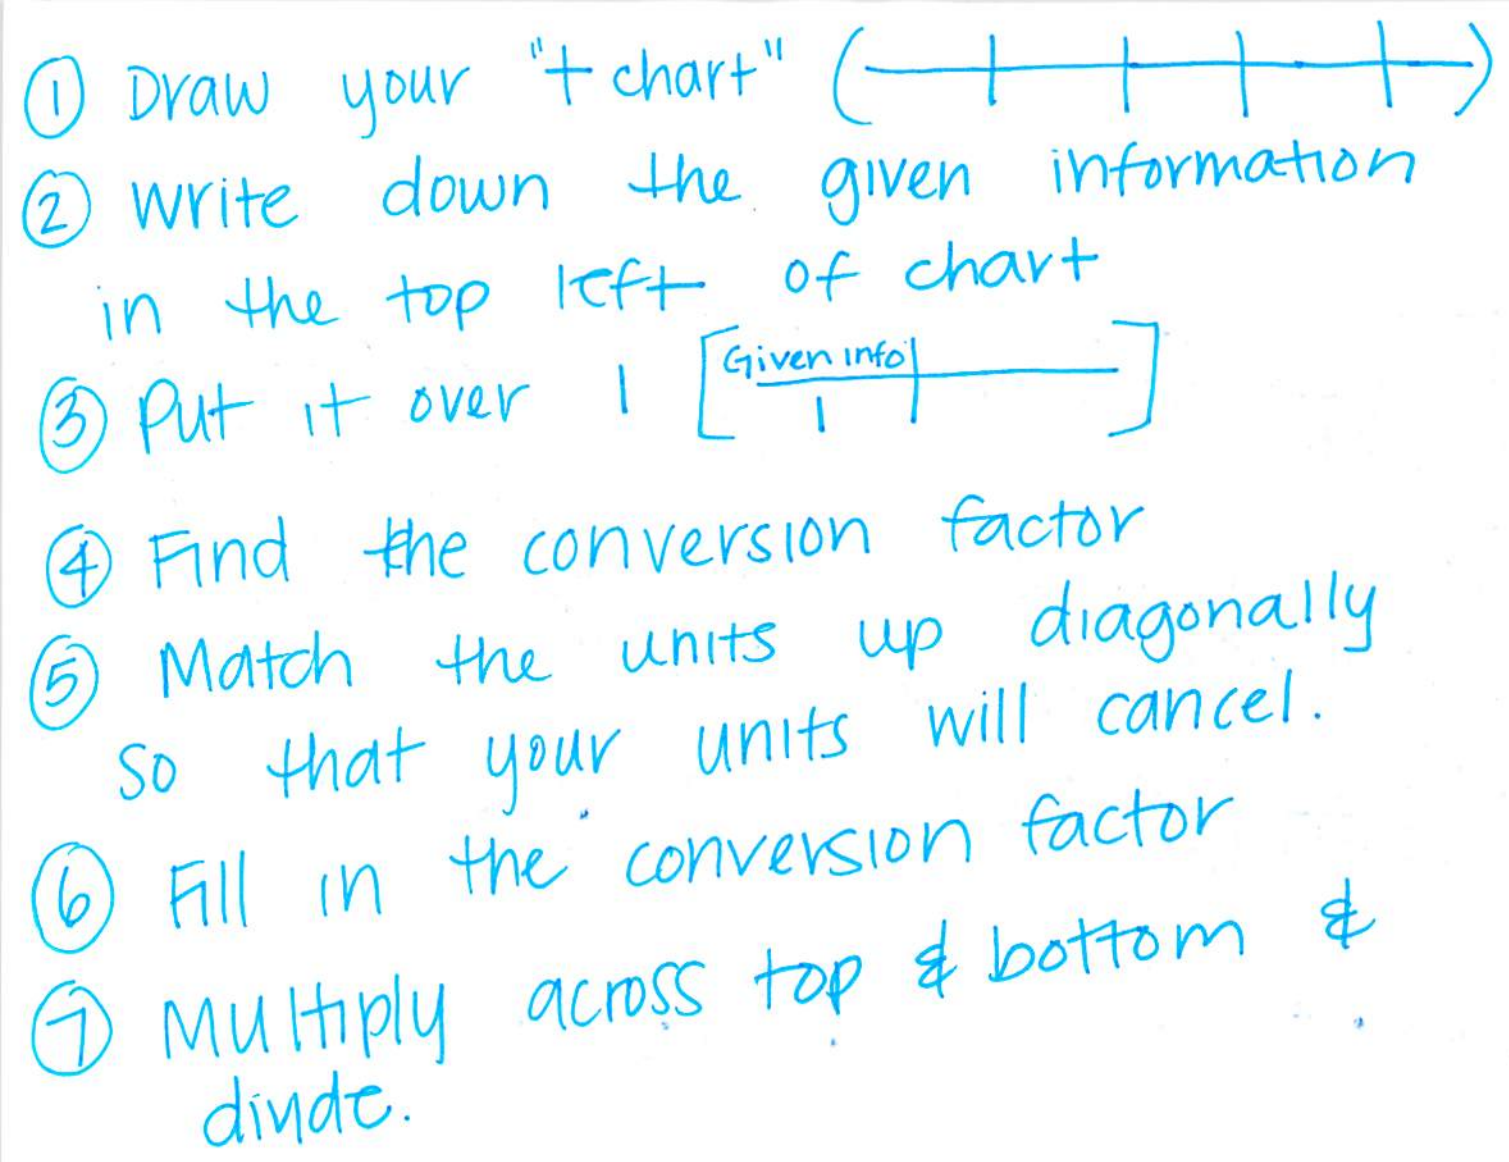 ① Draw your "t chart" ( )
② write down the given information
in the top left of chart
③ Put it over 1 [Given info 1]
④ Find the conversion factor
⑤ Match the units up diagonally
so that your units will cancel.
⑥ Fill in the conversion factor
⑦ Multiply across top & bottom &
divide.